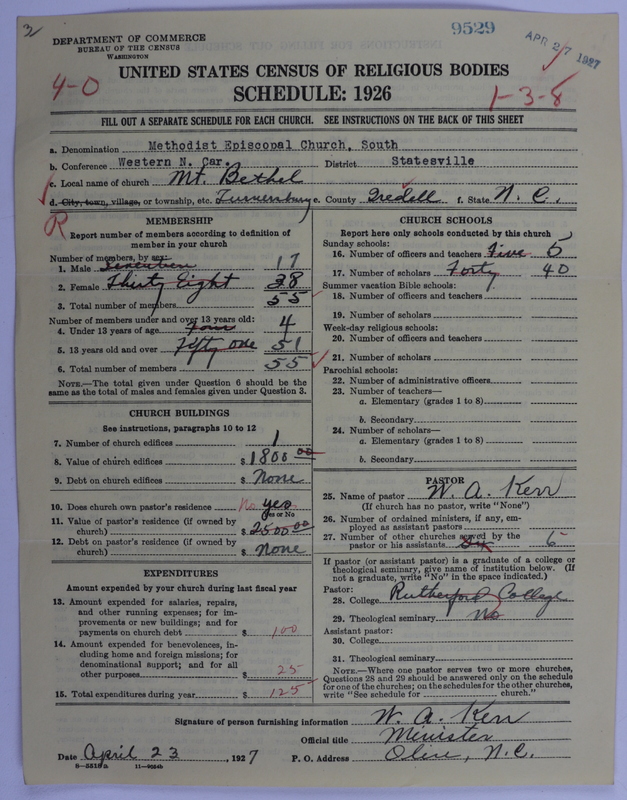 3
9529
APR 27 1927
DEPARTMENT OF COMMERCE
BUREAU OF THE CENSUS
WASHINGTON
UNITED STATES CENSUS OF RELIGIOUS BODIES
SCHEDULE: 1926
4-0
1-3-8
FILL OUT A SEPARATE SCHEDULE FOR EACH CHURCH. SEE INSTRUCTIONS ON THE BACK OF THIS SHEET
a. Denomination Methodist Episcopal Church, South
b. Conference Western N. Car. District Statesville
c. Local name of church Mt. Bethel
d. City, town, village, or township, etc. Turnersburg e. County Iredell f. State N. C.
R
MEMBERSHIP
Report number of members according to definition of
member in your church
Number of members, by sex:
1. Male Seventeen 17
2. Female Thirty Eight 38
3. Total number of members 55
Number of members under and over 13 years old:
4. Under 13 years of age Four 4
5. 13 years old and over Fifty one 51
6. Total number of members 55
NOTE.—The total given under Question 6 should be the
same as the total of males and females given under Question 3.
CHURCH BUILDINGS
See instructions, paragraphs 10 to 12
7. Number of church edifices 1
8. Value of church edifices $ 1800 00
9. Debt on church edifices $ None
10. Does church own pastor's residence No yes
Yes or No
11. Value of pastor's residence (if owned by
church) $ 2500 00
12. Debt on pastor's residence (if owned by
church) $ None
EXPENDITURES
Amount expended by your church during last fiscal year
13. Amount expended for salaries, repairs,
and other running expenses; for im-
provements or new buildings; and for
payments on church debt $ 100
14. Amount expended for benevolences, in-
cluding home and foreign missions; for
denominational support; and for all
other purposes $ 25
15. Total expenditures during year $ 125
CHURCH SCHOOLS
Report here only schools conducted by this church
Sunday schools:
16. Number of officers and teachers Five 5
17. Number of scholars Forty 40
Summer vacation Bible schools:
18. Number of officers and teachers
19. Number of scholars
Week-day religious schools:
20. Number of officers and teachers
21. Number of scholars
Parochial schools:
22. Number of administrative officers
23. Number of teachers—
a. Elementary (grades 1 to 8)
b. Secondary
24. Number of scholars—
a. Elementary (grades 1 to 8)
b. Secondary
PASTOR
25. Name of pastor W. A. Kerr
(If church has no pastor, write "None")
26. Number of ordained ministers, if any, em-
ployed as assistant pastors
27. Number of other churches served by the
pastor or his assistants Six 6
If pastor (or assistant pastor) is a graduate of a college or
theological seminary, give name of institution below. (If
not a graduate, write "No" in the space indicated.)
Pastor:
28. College Rutherford College
29. Theological seminary No
Assistant pastor:
30. College
31. Theological seminary
NOTE.—Where one pastor serves two or more churches,
Questions 28 and 29 should be answered only on the schedule
for one of the churches; on the schedules for the other churches,
write "See schedule for church."
Signature of person furnishing information W. A. Kerr
Official title Minister
Date April 23, 1927 P. O. Address Olin, N.C.
11—9054b